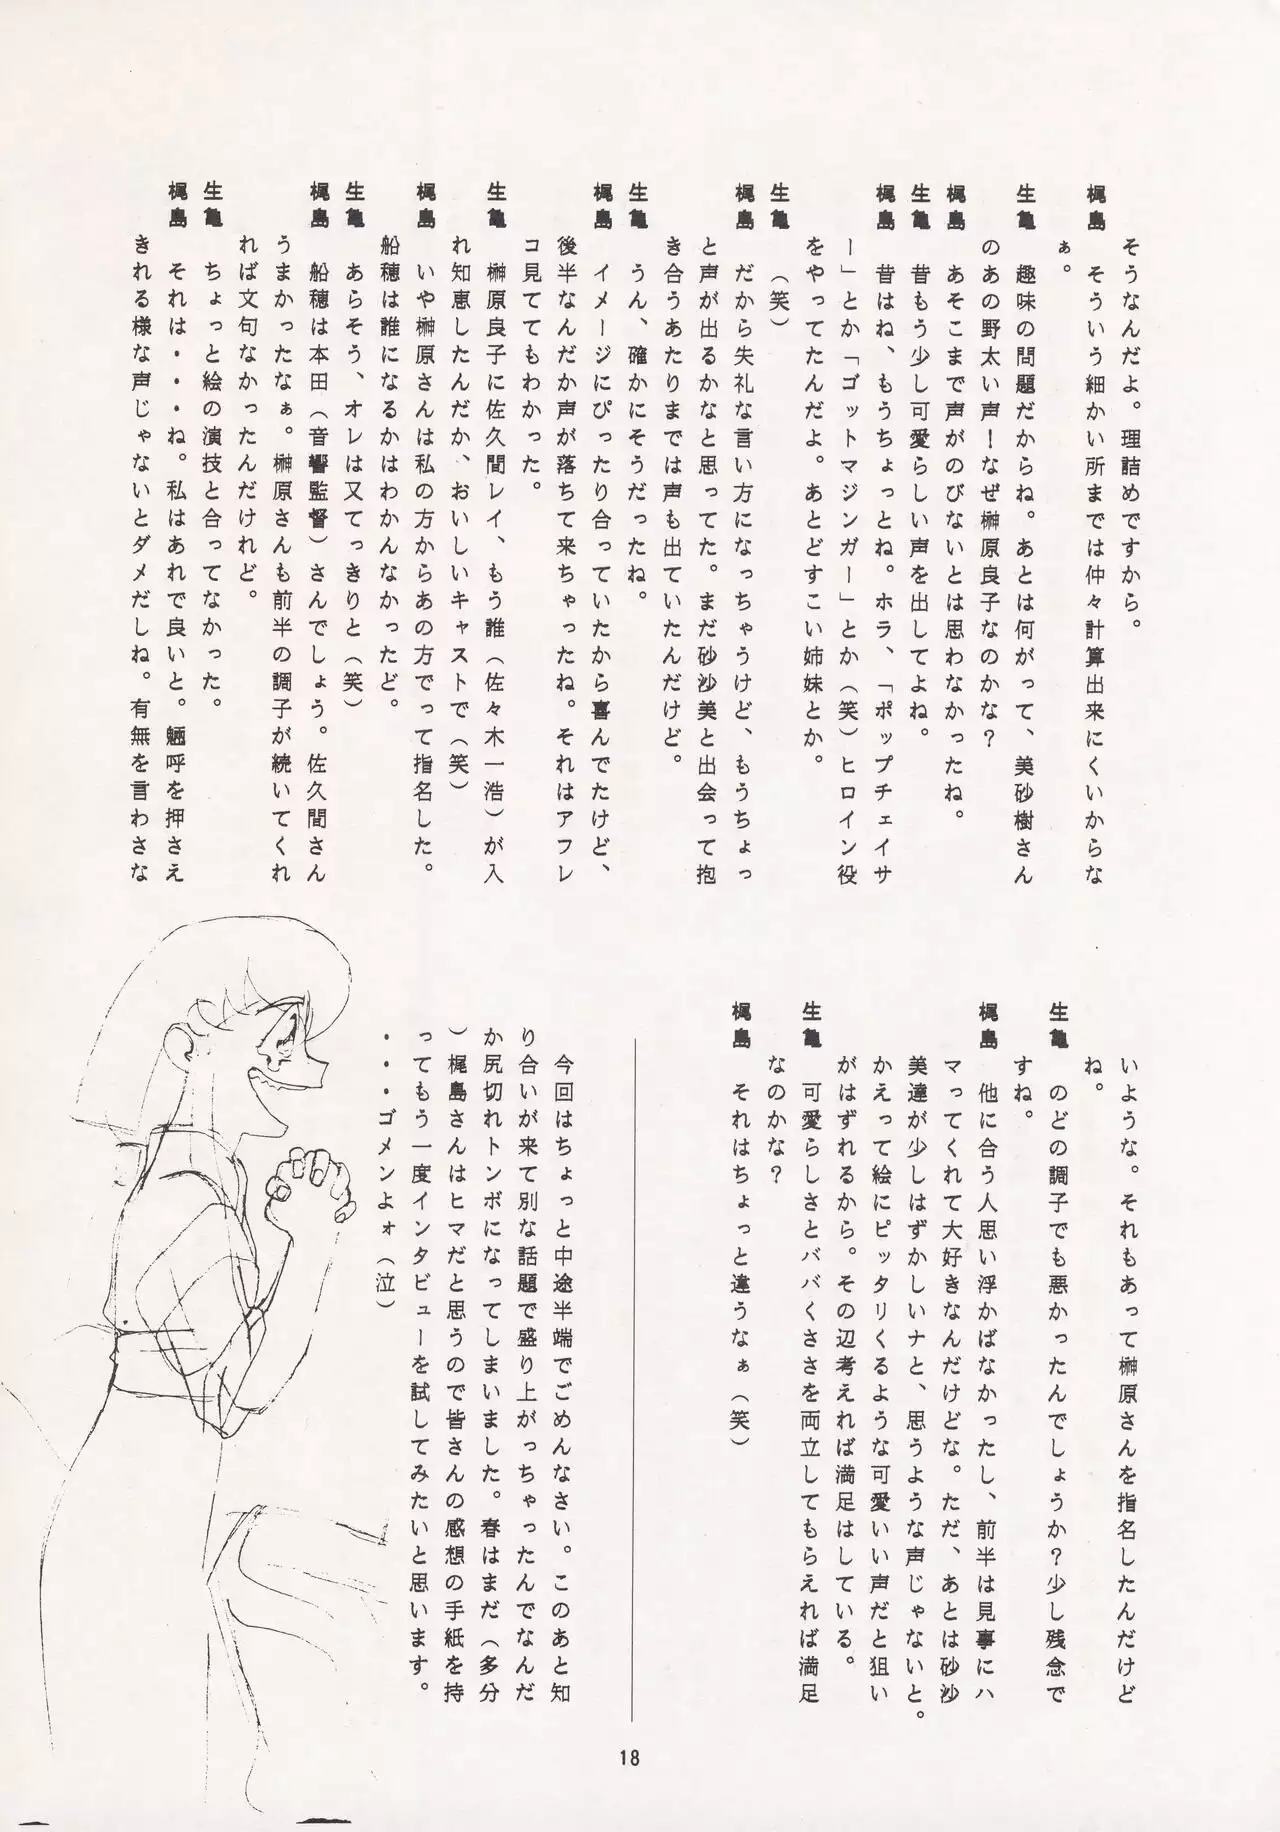 そうなんだよ。理詰めですから。
梶島　そういう細かい所までは仲々計算出来にくいからな
ぁ。
生亀　趣味の問題だからね。あとは何がって、美砂樹さん
のあの野太い声！なぜ榊原良子なのかな？
梶島　あそこまで声がのびないとは思わなかったね。
生亀　昔もう少し可愛らしい声を出してよね。
梶島　昔はね、もうちょっとね。ホラ、「ポップチェイサ
ー」とか「ゴットマジンガー」とか（笑）ヒロイン役
をやってたんだよ。あとどすこい姉妹とか。
生亀　（笑）
梶島　だから失礼な言い方になっちゃうけど、もうちょっ
と声が出るかなと思ってた。まだ砂沙美と出会って抱
き合うあたりまでは声も出ていたんだけど。
生亀　うん、確かにそうだったね。
梶島　イメージにぴったり合っていたから喜んでたけど、
後半なんだか声が落ちて来ちゃったね。それはアフレ
コ見ててもわかった。
生亀　榊原良子に佐久間レイ、もう誰（佐々木一浩）が入
れ知恵したんだか、おいしいキャストで（笑）
梶島　いや榊原さんは私の方からあの方でって指名した。
船穂は誰になるかはわかんなかったど。
生亀　あらそう、オレは又てっきりと（笑）
梶島　船穂は本田（音響監督）さんでしょう。佐久間さん
うまかったなぁ。榊原さんも前半の調子が続いてくれ
れば文句なかったんだけれど。
生亀　ちょっと絵の演技と合ってなかった。
梶島　それは・・・ね。私はあれで良いと。魎呼を押さえ
きれる様な声じゃないとダメだしね。有無を言わさな
いような。それもあって榊原さんを指名したんだけど
ね。
生亀　のどの調子でも悪かったんでしょうか？少し残念で
すね。
梶島　他に合う人思い浮かばなかったし、前半は見事にハ
マってくれて大好きなんだけどな。ただ、あとは砂沙
美達が少しはずかしいナと、思うような声じゃないと。
かえって絵にピッタリくるような可愛いい声だと狙い
がはずれるから。その辺考えれば満足はしている。
生亀　可愛らしさとババくささを両立してもらえれば満足
なのかな？
梶島　それはちょっと違うなぁ（笑）
今回はちょっと中途半端でごめんなさい。このあと知
り合いが来て別な話題で盛り上がっちゃったんでなんだ
か尻切れトンボになってしまいました。春はまだ（多分
）梶島さんはヒマだと思うので皆さんの感想の手紙を持
ってもう一度インタビューを試してみたいと思います。
・・・ゴメンよォ（泣）
18